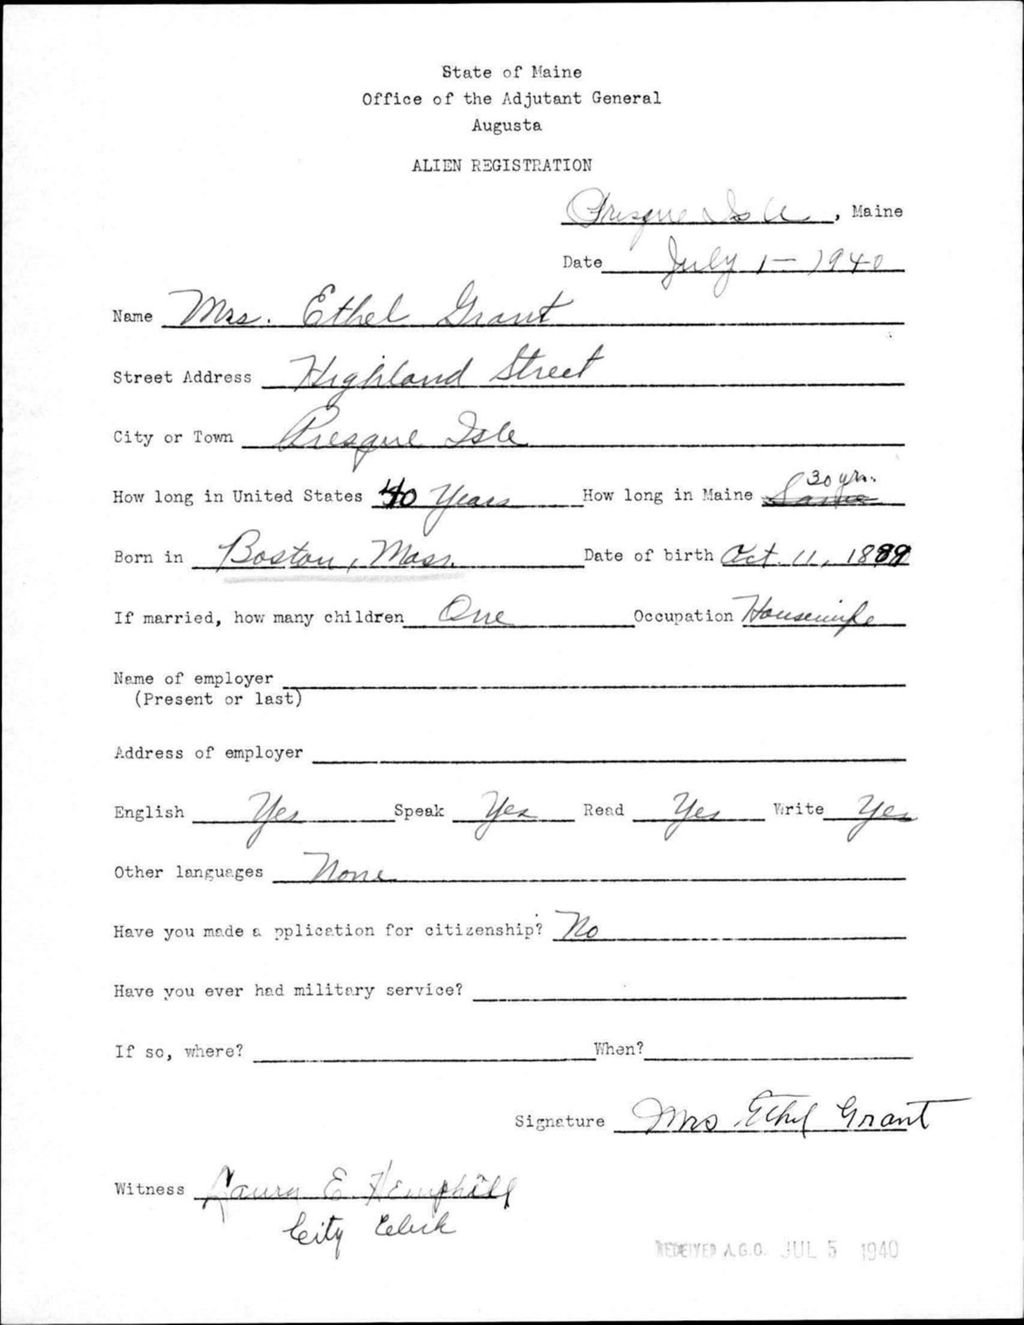 State of Maine
Office of the Adjutant General
Augusta
ALIEN REGISTRATION
Presque Isle, Maine
Date July 1 - 1940
Name Mrs. Ethel Grant
Street Address Highland Street
City or Town Presque Isle
How long in United States 40 Years How long in Maine Same 30 yrs.
Born in Boston, Mass. Date of birth Oct. 11, 1889
If married, how many children One Occupation Housewife
Name of employer
(Present or last)
Address of employer
English Yes Speak Yes Read Yes Write Yes
Other languages None
Have you made a pplication for citizenship? No
Have you ever had military service?
If so, where? When?
Signature Mrs Ethel Grant
Witness Laura E. Hemphill
City Clerk
RECEIVED A.G.O. JUL 5 1940